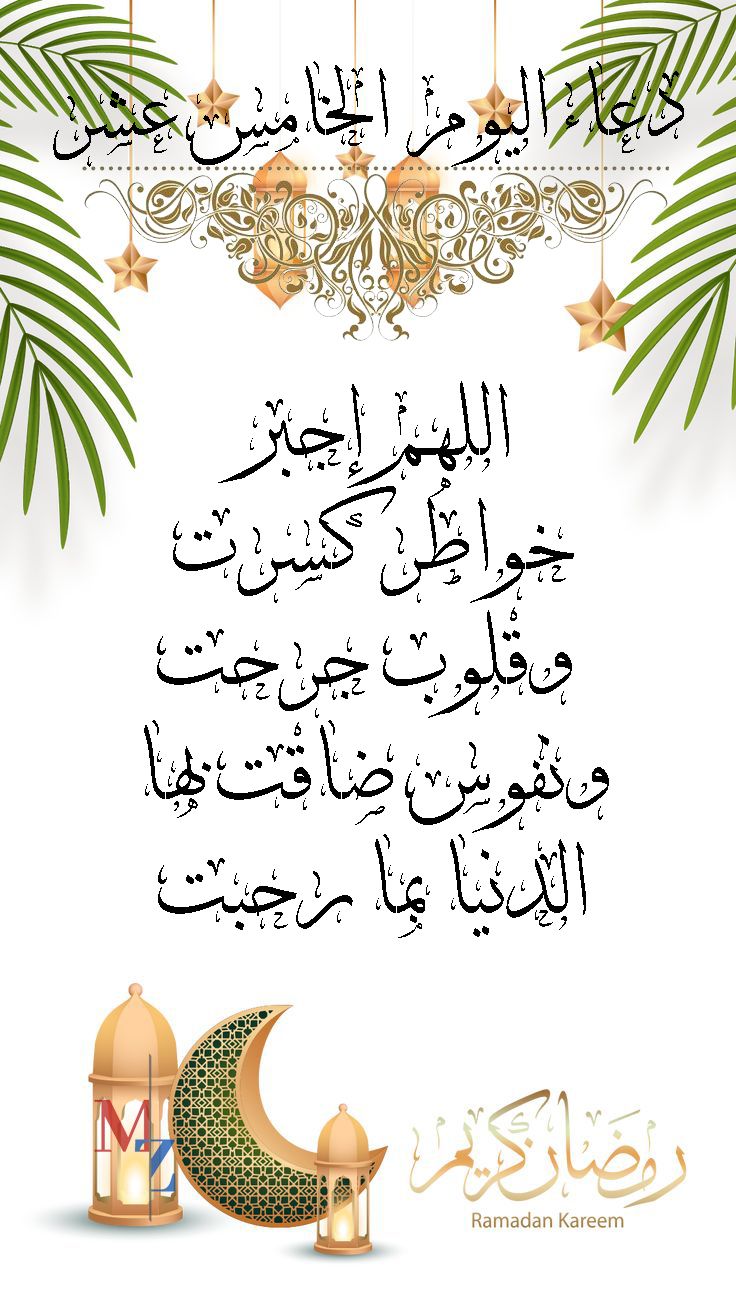 دعاء اليوم الخامس عشر
اللهم إجبر
خواطر كسرت
وقلوب جرحت
ونفوس ضاقت بها
الدنيا بما رحبت
رمضان كريم
Ramadan Kareem
MZ